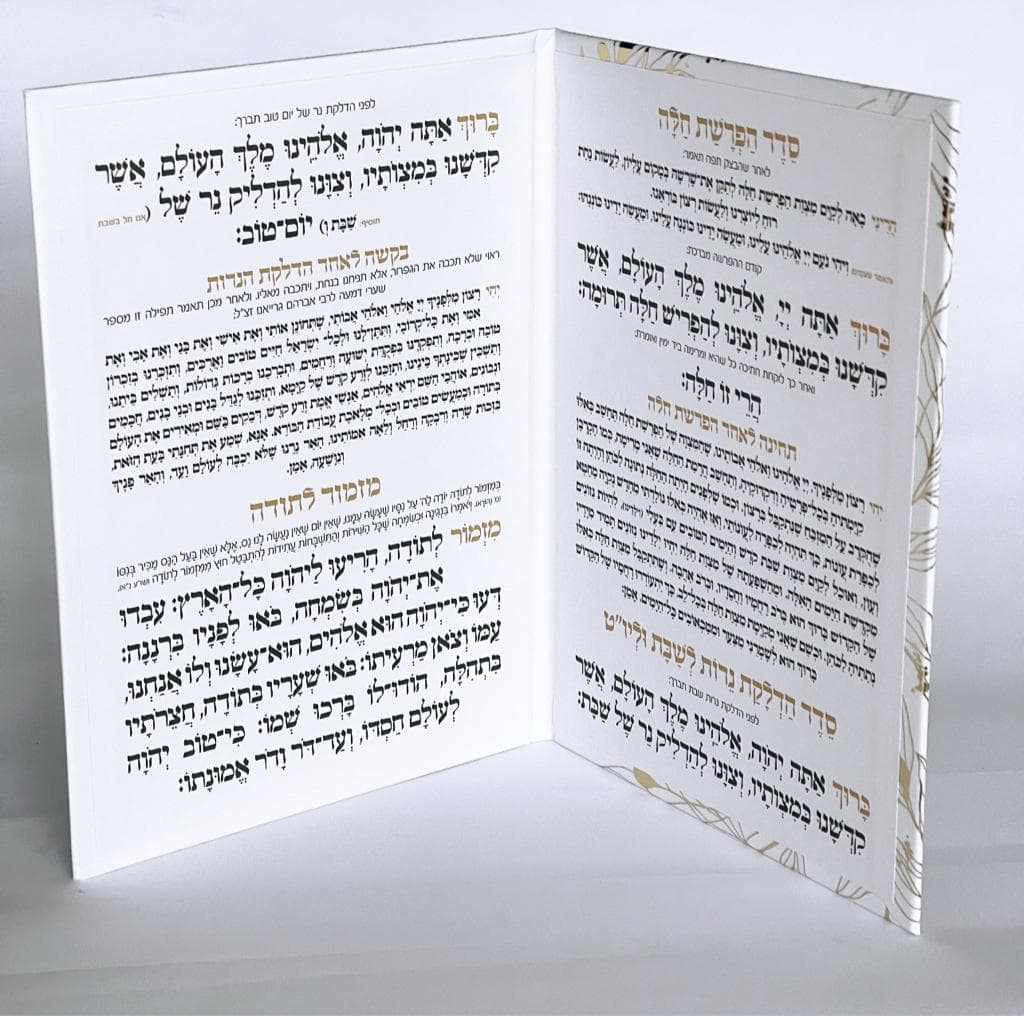 סֵדֶר הַפְרָשַׁת חַלָּה
לאחר שהבצק תפח תאמר:
הֲרֵינִי בָּאָה לְקַיֵּם מִצְוַת הַפְרָשַׁת חַלָּה לְתַקֵּן אֶת־שָׁרְשָׁהּ בְּמָקוֹם עֶלְיוֹן, לַעֲשׂוֹת נַחַת
רוּחַ לְיוֹצְרֵנוּ וְלַעֲשׂוֹת רְצוֹן בּוֹרְאֵנוּ.
וִיהִי נֹעַם יְיָ אֱלֹהֵינוּ עָלֵינוּ, וּמַעֲשֵׂה יָדֵינוּ כּוֹנְנָה עָלֵינוּ, וּמַעֲשֵׂה יָדֵינוּ כּוֹנְנֵהוּ:
קודם ההפרשה מברכת:
בָּרוּךְ אַתָּה יְיָ, אֱלֹהֵינוּ מֶלֶךְ הָעוֹלָם, אֲשֶׁר
קִדְּשָׁנוּ בְּמִצְוֹתָיו, וְצִוָּנוּ לְהַפְרִישׁ חַלָּה תְּרוּמָה:
ואחר כך לוקחת חתיכה כל שהיא ומרימה ביד ימין ואומרת:
הֲרֵי זוֹ חַלָּה:
תחינה לאחר הפרשת חלה
יְהִי רָצוֹן מִלְּפָנֶיךָ, יְיָ אֱלֹהֵינוּ וֵאלֹהֵי אֲבוֹתֵינוּ, שֶׁהַמִּצְוָה שֶׁל הַפְרָשַׁת חַלָּה תֵּחָשֵׁב כְּאִלּוּ
קִיַּמְתִּיהָ בְּכָל־פְּרָטֶיהָ וְדִקְדּוּקֶיהָ, וְתֵחָשֵׁב הֲרָמַת הַחַלָּה שֶׁאֲנִי מְרִימָה כְּמוֹ הַקָּרְבָּן
שֶׁהֻקְרַב עַל הַמִּזְבֵּחַ שֶׁנִּתְקַבֵּל בְּרָצוֹן, וּכְמוֹ שֶׁלְּפָנִים הָיְתָה הַחַלָּה נְתוּנָה לַכֹּהֵן וְהָיְתָה זוֹ
לְכַפָּרַת עֲוֹנוֹת, כָּךְ תִּהְיֶה לְכַפָּרָה לַעֲוֹנוֹתַי, וְאָז אֶהְיֶה כְּאִלּוּ נוֹלַדְתִּי מֵחָדָשׁ נְקִיָּה מֵחֵטְא
וְעָוֹן, וְאוּכַל לְקַיֵּם מִצְוַת שַׁבַּת קֹדֶשׁ וְהַיָּמִים הַטּוֹבִים עִם בַּעְלִי (וִילָדֵינוּ), לִהְיוֹת נִזּוֹנִים
מִקְּדֻשַּׁת הַיָּמִים הָאֵלֶּה, וּמֵהַשְׁפָּעָתָהּ שֶׁל מִצְוַת חַלָּה יִהְיוּ יְלָדֵינוּ נִזּוֹנִים תָּמִיד מִיָּדָיו
שֶׁל הַקָּדוֹשׁ בָּרוּךְ הוּא, בְּרֹב רַחֲמָיו וַחֲסָדָיו, וּבְרֹב אַהֲבָה, וְשֶׁתִּתְקַבֵּל מִצְוַת חַלָּה כְּאִלּוּ
נָתַתִּי מַעֲשֵׂר, וּכְשֵׁם שֶׁאֲנִי מְקַיֶּמֶת מִצְוַת חַלָּה בְּכָל־לֵב, כָּךְ יִתְעוֹרְרוּ רַחֲמָיו שֶׁל הַקָּדוֹשׁ
בָּרוּךְ הוּא לְשָׁמְרֵנִי מִצַּעַר וּמִמַּכְאוֹבִים כָּל־הַיָּמִים, אָמֵן.
סֵדֶר הַדְלָקַת נֵרוֹת לְשַׁבָּת וּלְיו״ט
לפני הדלקת נרות שבת תברך:
בָּרוּךְ אַתָּה יְהֹוָה, אֱלֹהֵינוּ מֶלֶךְ הָעוֹלָם, אֲשֶׁר
קִדְּשָׁנוּ בְּמִצְוֹתָיו, וְצִוָּנוּ לְהַדְלִיק נֵר שֶׁל שַׁבָּת:
לפני הדלקת נר של יום טוב תברך:
בָּרוּךְ אַתָּה יְהֹוָה, אֱלֹהֵינוּ מֶלֶךְ הָעוֹלָם, אֲשֶׁר
קִדְּשָׁנוּ בְּמִצְוֹתָיו, וְצִוָּנוּ לְהַדְלִיק נֵר שֶׁל (אם חל בשבת
תוסיף: שַׁבָּת וְ) יוֹם־טוֹב:
בקשה לאחר הדלקת הנרות
ראוי שלא תכבה את הגפרור, אלא תניחנו בנחת, ויתכבה מאליו, ולאחר מכן תאמר תפילה זו מספר
שערי דמעה לרבי אברהם גרייאנו זצ״ל.
יְהִי רָצוֹן מִלְּפָנֶיךָ יְיָ אֱלֹהַי וֵאלֹהֵי אֲבוֹתַי, שֶׁתְּחוֹנֵן אוֹתִי וְאֶת אִישִׁי וְאֶת בָּנַי וְאֶת אָבִי וְאֶת
אִמִּי וְאֶת כָּל־קְרוֹבַי, וְתִתֵּן־לָנוּ וּלְכָל־יִשְׂרָאֵל חַיִּים טוֹבִים וַאֲרֻכִּים, וְתִזְכְּרֵנוּ בְּזִכְרוֹן
טוֹבָה וּבְרָכָה, וְתִפְקְדֵנוּ בִּפְקֻדַּת יְשׁוּעָה וְרַחֲמִים, וּתְבָרְכֵנוּ בְּרָכוֹת גְּדוֹלוֹת, וְתַשְׁלִים בָּתֵּינוּ,
וְתַשְׁכֵּן שְׁכִינָתְךָ בֵּינֵינוּ, וְתִזְכֵּנוּ לְזֶרַע קֹדֶשׁ שֶׁל קַיָּמָא, וּתְזַכֵּנוּ לְגַדֵּל בָּנִים וּבְנֵי בָנִים, חֲכָמִים
וּנְבוֹנִים, אוֹהֲבֵי הַשֵּׁם יִרְאֵי אֱלֹהִים, אַנְשֵׁי אֱמֶת וְזֶרַע קֹדֶשׁ, דְּבֵקִים בַּשֵּׁם וּמְאִירִים אֶת הָעוֹלָם
בַּתּוֹרָה וּבְמַעֲשִׂים טוֹבִים וּבְכָל־מְלֶאכֶת עֲבוֹדַת הַבּוֹרֵא. אָנָּא, שְׁמַע אֶת תְּחִנָּתִי בָּעֵת הַזֹּאת,
בִּזְכוּת שָׂרָה וְרִבְקָה וְרָחֵל וְלֵאָה אִמּוֹתֵינוּ, וְהָאֵר נֵרֵנוּ שֶׁלֹּא יִכְבֶּה לְעוֹלָם וָעֶד, וְהָאֵר פָּנֶיךָ
וְנִוָּשֵׁעָה, אָמֵן.
מזמור לתודה
בְּמִזְמוֹר לְתוֹדָה יוֹדֶה לַה' עַל נִסָּיו שֶׁעָשָׂה עִמָּנוּ, שֶׁאֵין יוֹם שֶׁאֵין נַעֲשֶׂה לָנוּ נֵס, אֶלָּא שֶׁאֵין בַּעַל הַנֵּס מַכִּיר בְּנִסּוֹ
וְיֹאמְרוֹ בִּנְגִינָה וּבְשִׂמְחָה שֶׁכָּל הַשִּׁירוֹת וְהַתִּשְׁבָּחוֹת עֲתִידוֹת לְהִתְבַּטֵּל חוּץ מִמִּזְמוֹר לְתוֹדָה
מִזְמוֹר לְתוֹדָה, הָרִיעוּ לַיהֹוָה כָּל־הָאָרֶץ: עִבְדוּ
אֶת־יְהֹוָה בְּשִׂמְחָה, בֹּאוּ לְפָנָיו בִּרְנָנָה:
דְּעוּ כִּי־יְהֹוָה הוּא אֱלֹהִים, הוּא־עָשָׂנוּ וְלוֹ אֲנַחְנוּ,
עַמּוֹ וְצֹאן מַרְעִיתוֹ: בֹּאוּ שְׁעָרָיו בְּתוֹדָה, חֲצֵרֹתָיו
בִּתְהִלָּה, הוֹדוּ־לוֹ בָּרְכוּ שְׁמוֹ: כִּי־טוֹב יְהֹוָה
לְעוֹלָם חַסְדּוֹ, וְעַד־דֹּר וָדֹר אֱמוּנָתוֹ: